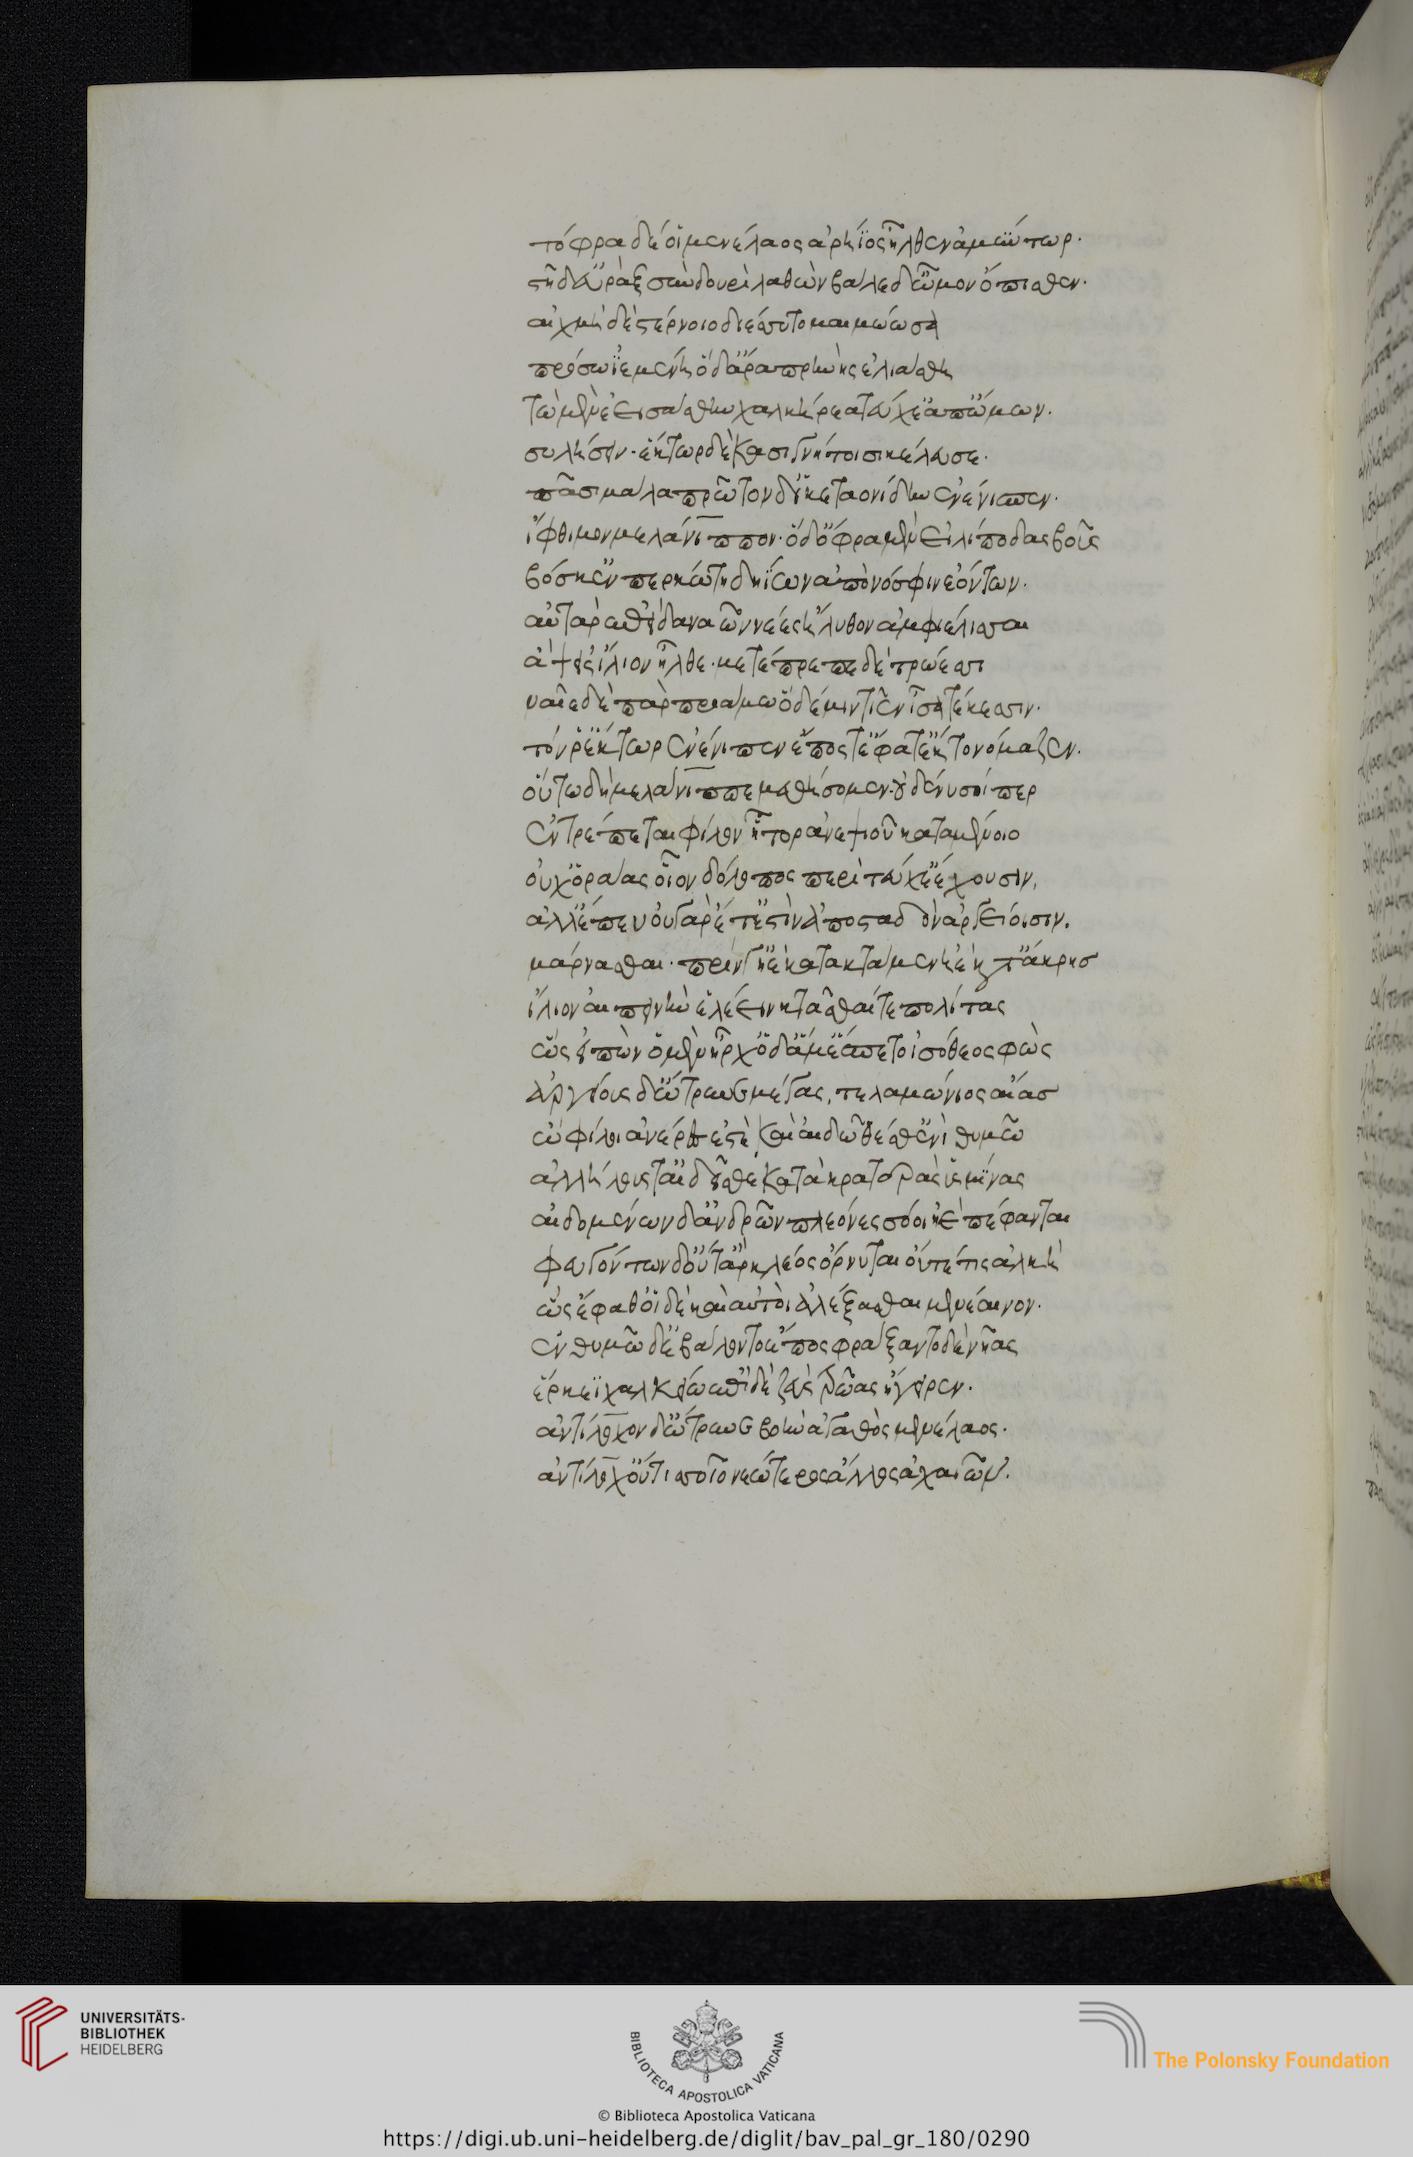 τόφρα δέ οἱ μενέλαος ἀρήϊος ἦλθεν ἀμύντωρ.
στῆ δ' εὐρὰξ σὺν δουρὶ λαθὼν βάλε δ' ὦμον ὄπισθεν.
αἰχμὴ δὲ στέρνοιο διέσσυτο μαιμώωσα
πρόσω ἱεμένη· ὃ δ' ἄρα πρηνὴς ἐλιάσθη
τὼ μὲν ἐεισάσθην χαλκήρεα τεύχε' ἀπ' ὤμων.
συλήσειν. ἕκτωρ δὲ κασιγνήτοισι κέλευσε.
πᾶσι μάλα πρῶτον δ' ἱκεταονίδην ἐνένιπεν.
ἴφθιμον μελάνιππον. ὃ δ' ὄφρα μὲν εἰλίποδας βοῦς
βόσκ' ἐν περκώτη δηΐων ἀπὸ νόσφιν ἐόντων.
αὐτὰρ ἐπεὶ δαναῶν νέες ἤλυθον ἀμφιέλισσαι
ἂψ εἰς ἴλιον ἦλθε. μετέπρεπε δὲ τρώεσσι
ναῖε δὲ πὰρ πριάμω ὃ δέ μιν τῖεν ἶσα τέκεσσιν.
τόν ῥ' ἕκτωρ ἐνένιπεν ἔπος τ' ἔφατ' ἔκ τ' ὀνόμαζεν.
οὕτω δὴ μελάνιππε μεθήσομεν. οὐδέ νυ σοί περ
ἐντρέπεται φίλον ἦτορ ἀνεψιοῦ κταμένοιο
οὐχ ὁράας οἷον δόλοπος περὶ τεύχε' ἕπουσιν.
ἀλλ' ἕπευ οὐ γὰρ ἔτ' ἔστιν ἀποσταδὸν ἀργείοισιν.
μάρνασθαι. πρίν γ' ἠὲ κατακτάμεν ἠὲ κατ' ἄκρης
ἴλιον αἰπεινὴν ἑλέειν κτάσθαι τε πολίτας
ὣς εἰπὼν ὃ μὲν ἦρχ' ὃ δ' ἅμ' ἕσπετο ἰσόθεος φώς
ἀργείους δ' ὤτρυνε μέγας, τελαμώνιος αἴας
ὦ φίλοι ἀνέρες ἐστὲ καὶ αἰδῶ θέσθ' ἐνὶ θυμῶ
ἀλλήλους τ' αἰδεῖσθε κατὰ κρατερὰς ὑσμίνας
αἰδομένων δ' ἀνδρῶν πλέονες σόοι ἠὲ πέφανται
φευγόντων δ' οὔτ' ἂρ κλέος ὄρνυται οὔτέ τις ἀλκή
ὣς ἔφαθ' οἳ δὲ καὶ αὐτοὶ ἀλέξασθαι μενέαινον.
ἐν θυμῶ δ' ἐβάλοντο ἔπος φράξαντο δὲ νῆας
ἕρκεϊ χαλκείω ἐπὶ δὲ ζεὺς τρῶας ἔγειρεν.
ἀντίλοχον δ' ὤτρυνε βοὴν ἀγαθὸς μενέλαος.
ἀντίλοχ' οὔτις σεῖο νεώτερος ἄλλος ἀχαιῶν.
UNIVERSITÄTS-
BIBLIOTHEK
HEIDELBERG
BIBLIOTECA APOSTOLICA VATICANA
The Polonsky Foundation
© Biblioteca Apostolica Vaticana
https://digi.ub.uni-heidelberg.de/diglit/bav_pal_gr_180/0290